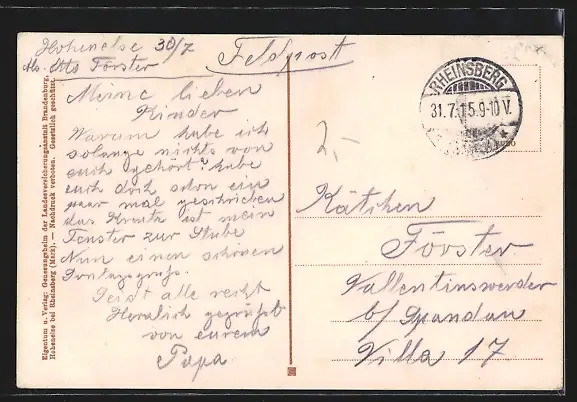 Hohenelse 30/7
Abs. Otto Förster
Feldpost
Meine lieben
Kinder
Warum habe ich
solange nichts von
euch gehört? habe
euch doch schon ein
paar mal geschrieben
das Kreutz ist mein
Fenster zur Stube
Nun einen schönen
Sontagsgruss.
Seid alle recht
Herzlich gegrüßt
von eurem
Papa
Eigentum u. Verlag: Genesungsheim der Landesversicherungsanstalt Brandenburg,
Hohenelse bei Rheinsberg (Mark). — Nachdruck verboten. Gesetzlich geschützt.
RHEINSBERG
31.7.15.9-10 V.
2,-
Kätchen
Förster
Vallentinswerder
b/ Spandau
Villa 17